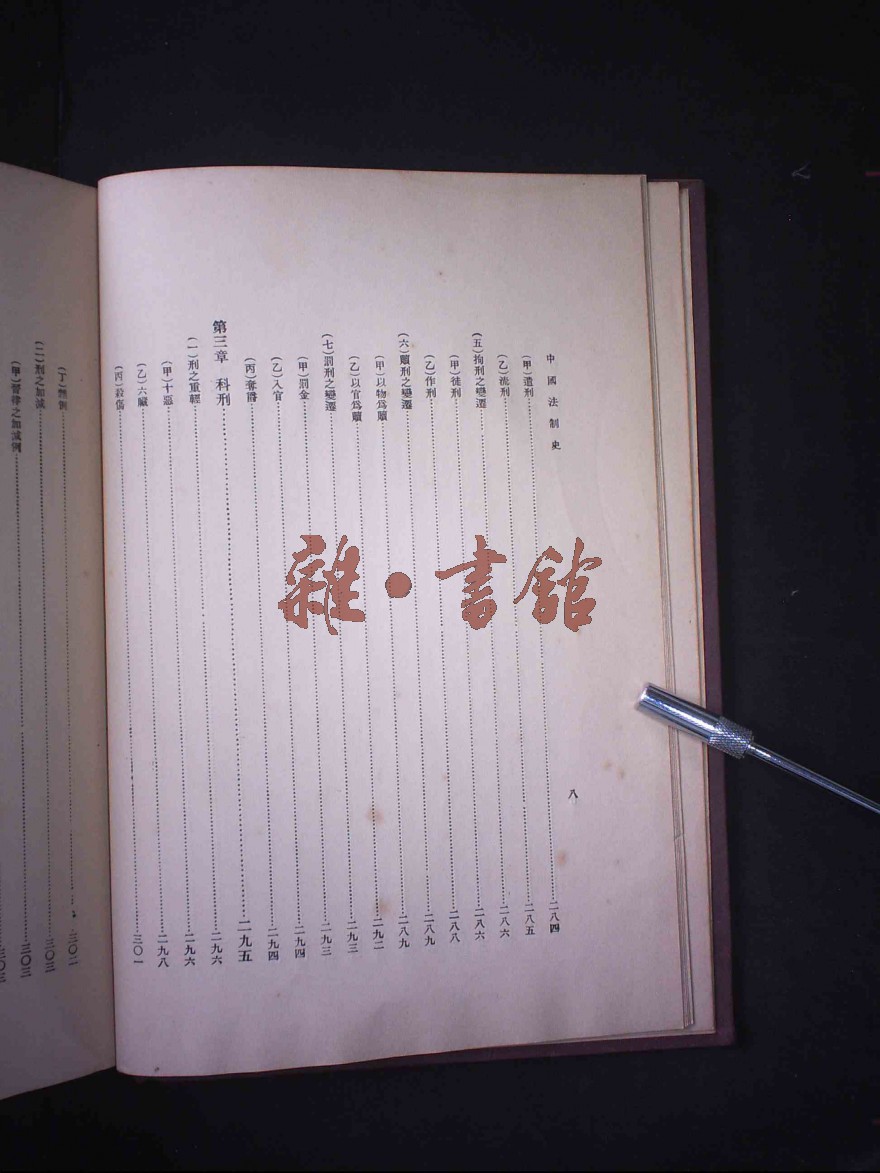 中國法制史
八
(甲)遣刑……二八四
(乙)流刑……二八五
(五)拘刑之變遷……二八六
(甲)徒刑……二八六
(乙)作刑……二八八
(六)贖刑之變遷……二八九
(甲)以物爲贖……二八九
(乙)以官爲贖……二九二
(七)罰刑之變遷……二九三
(甲)罰金……二九三
(乙)入官……二九四
(丙)奪爵……二九四
第三章 科刑……二九五
(一)刑之重輕……二九六
(甲)十惡……二九六
(乙)六贓……二九八
(丙)殺傷……三〇一
(丁)例……三〇二
(二)刑之加減……三〇三
(甲)晉律之加減例……三〇三
雜·書館